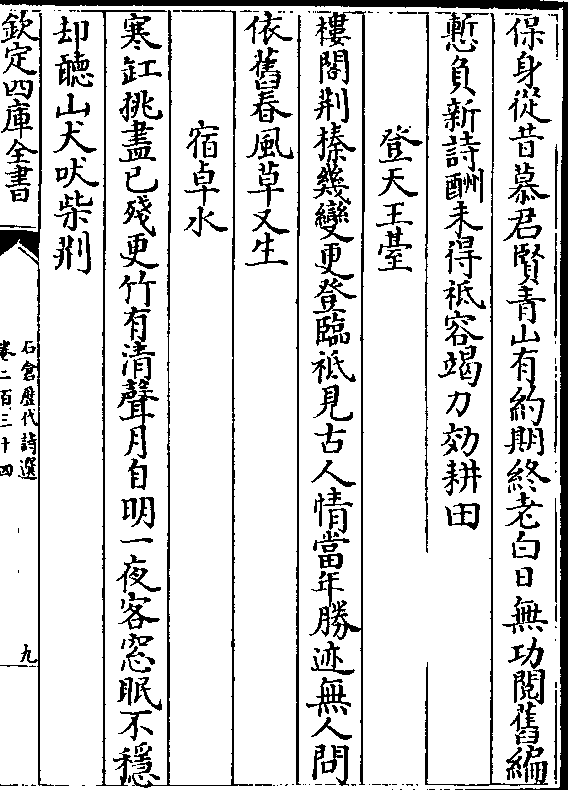 保身從昔慕君賢青山有約期終老白日無功閱舊編
慙負新詩酬未得祗容竭力効耕田
登天王臺
樓閣荆榛幾變更登臨祗見古人情當年勝迹無人問
依舊春風草又生
宿卓水
寒缸挑盡已殘更竹有清聲月自明一夜客窓眠不穩
却聽山犬吠柴荆
欽定四庫全書
石倉歷代詩選
卷二百三十四
九